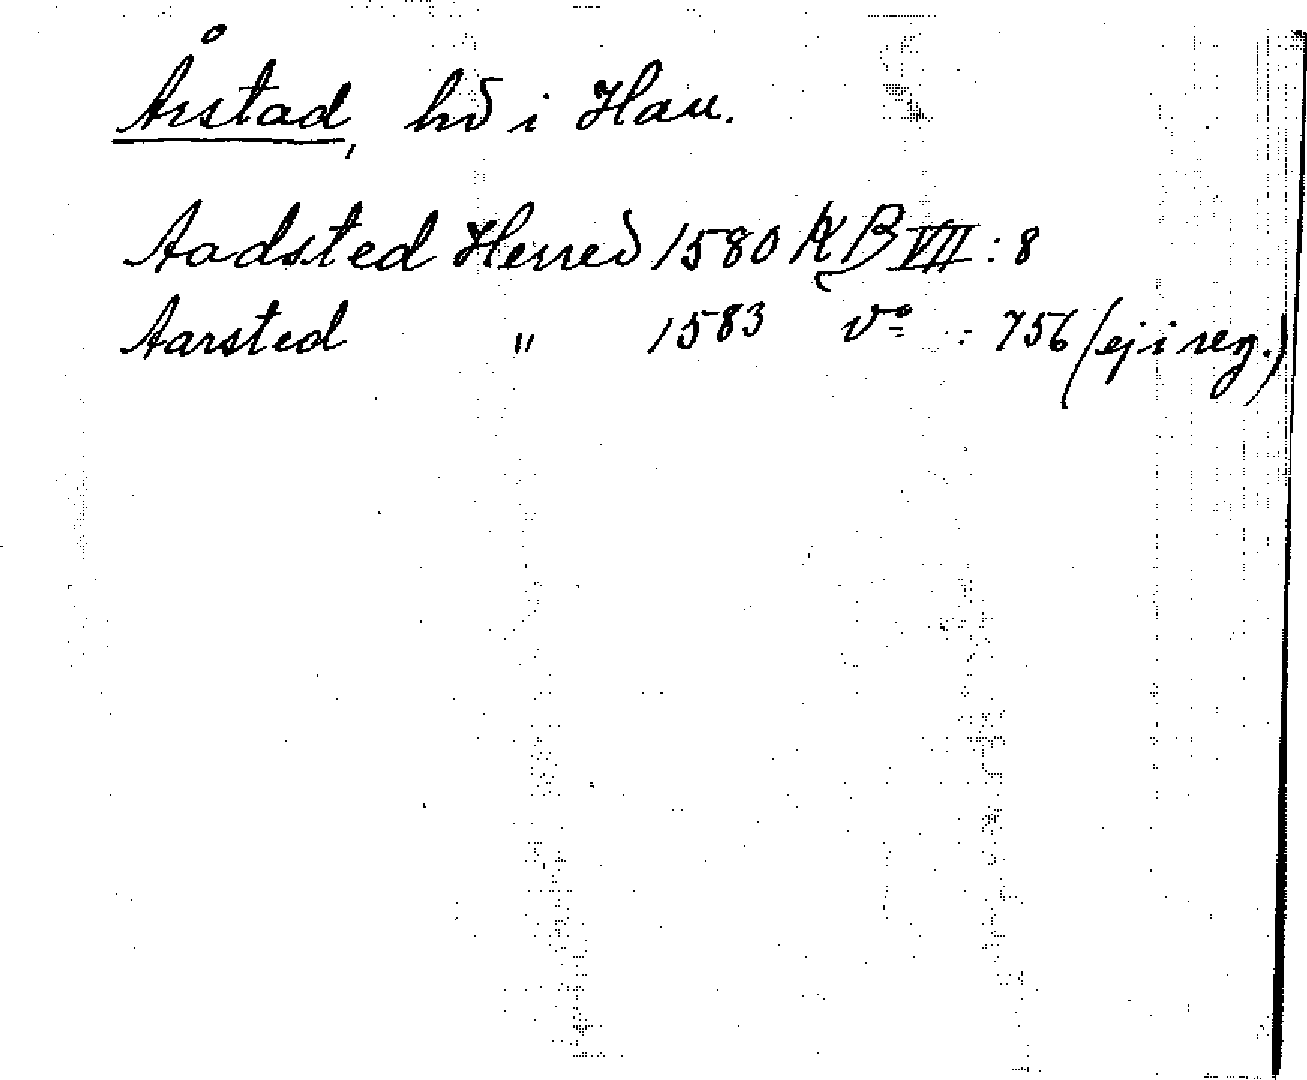 Årstad, hd i Hall.
Aadsted Herred 1580 KB VII : 8
Aarsted " 1583 vo : 756 (ej i reg.)